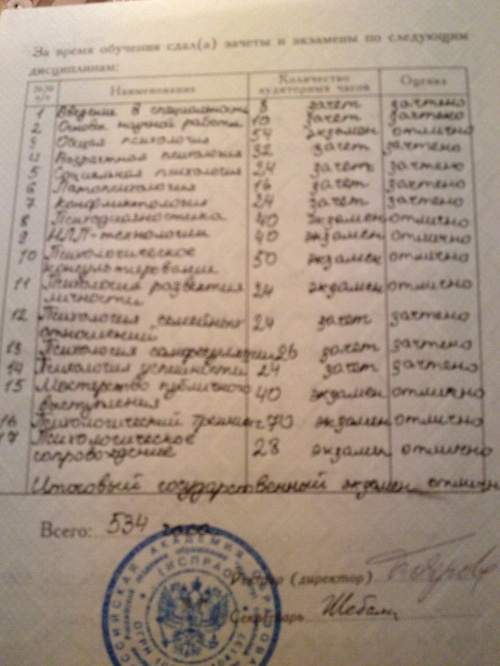 За время обучения сдал(а) зачеты и экзамены по следующим
дисциплинам:
№№ п/п Наименование Количество аудиторных часов Оценка
1 Введение в специальность 8 зачет зачтено
2 Основы научной работы 10 зачет зачтено
3 Общая психология 54 экзамен отлично
4 Возрастная психология 32 зачет зачтено
5 Социальная психология 24 зачет зачтено
6 Патопсихология 16 зачет зачтено
7 Конфликтология 24 зачет зачтено
8 Психодиагностика 40 экзамен отлично
9 НЛП-технологии 40 экзамен отлично
10 Психологическое
консультирование 50 экзамен отлично
11 Психология развития
личности 24 экзамен отлично
12 Психология семейных
отношений 24 зачет зачтено
13 Психология саморегуляции 26 зачет зачтено
14 Психология успешности 24 зачет зачтено
15 Мастерство публичного
выступления 40 экзамен отлично
16 Психологический тренинг 70 экзамен отлично
17 Психологическое
сопровождение 28 экзамен отлично
Итоговый государственный экзамен отлично
Всего: 534 часа
Ректор (директор)
Секретарь